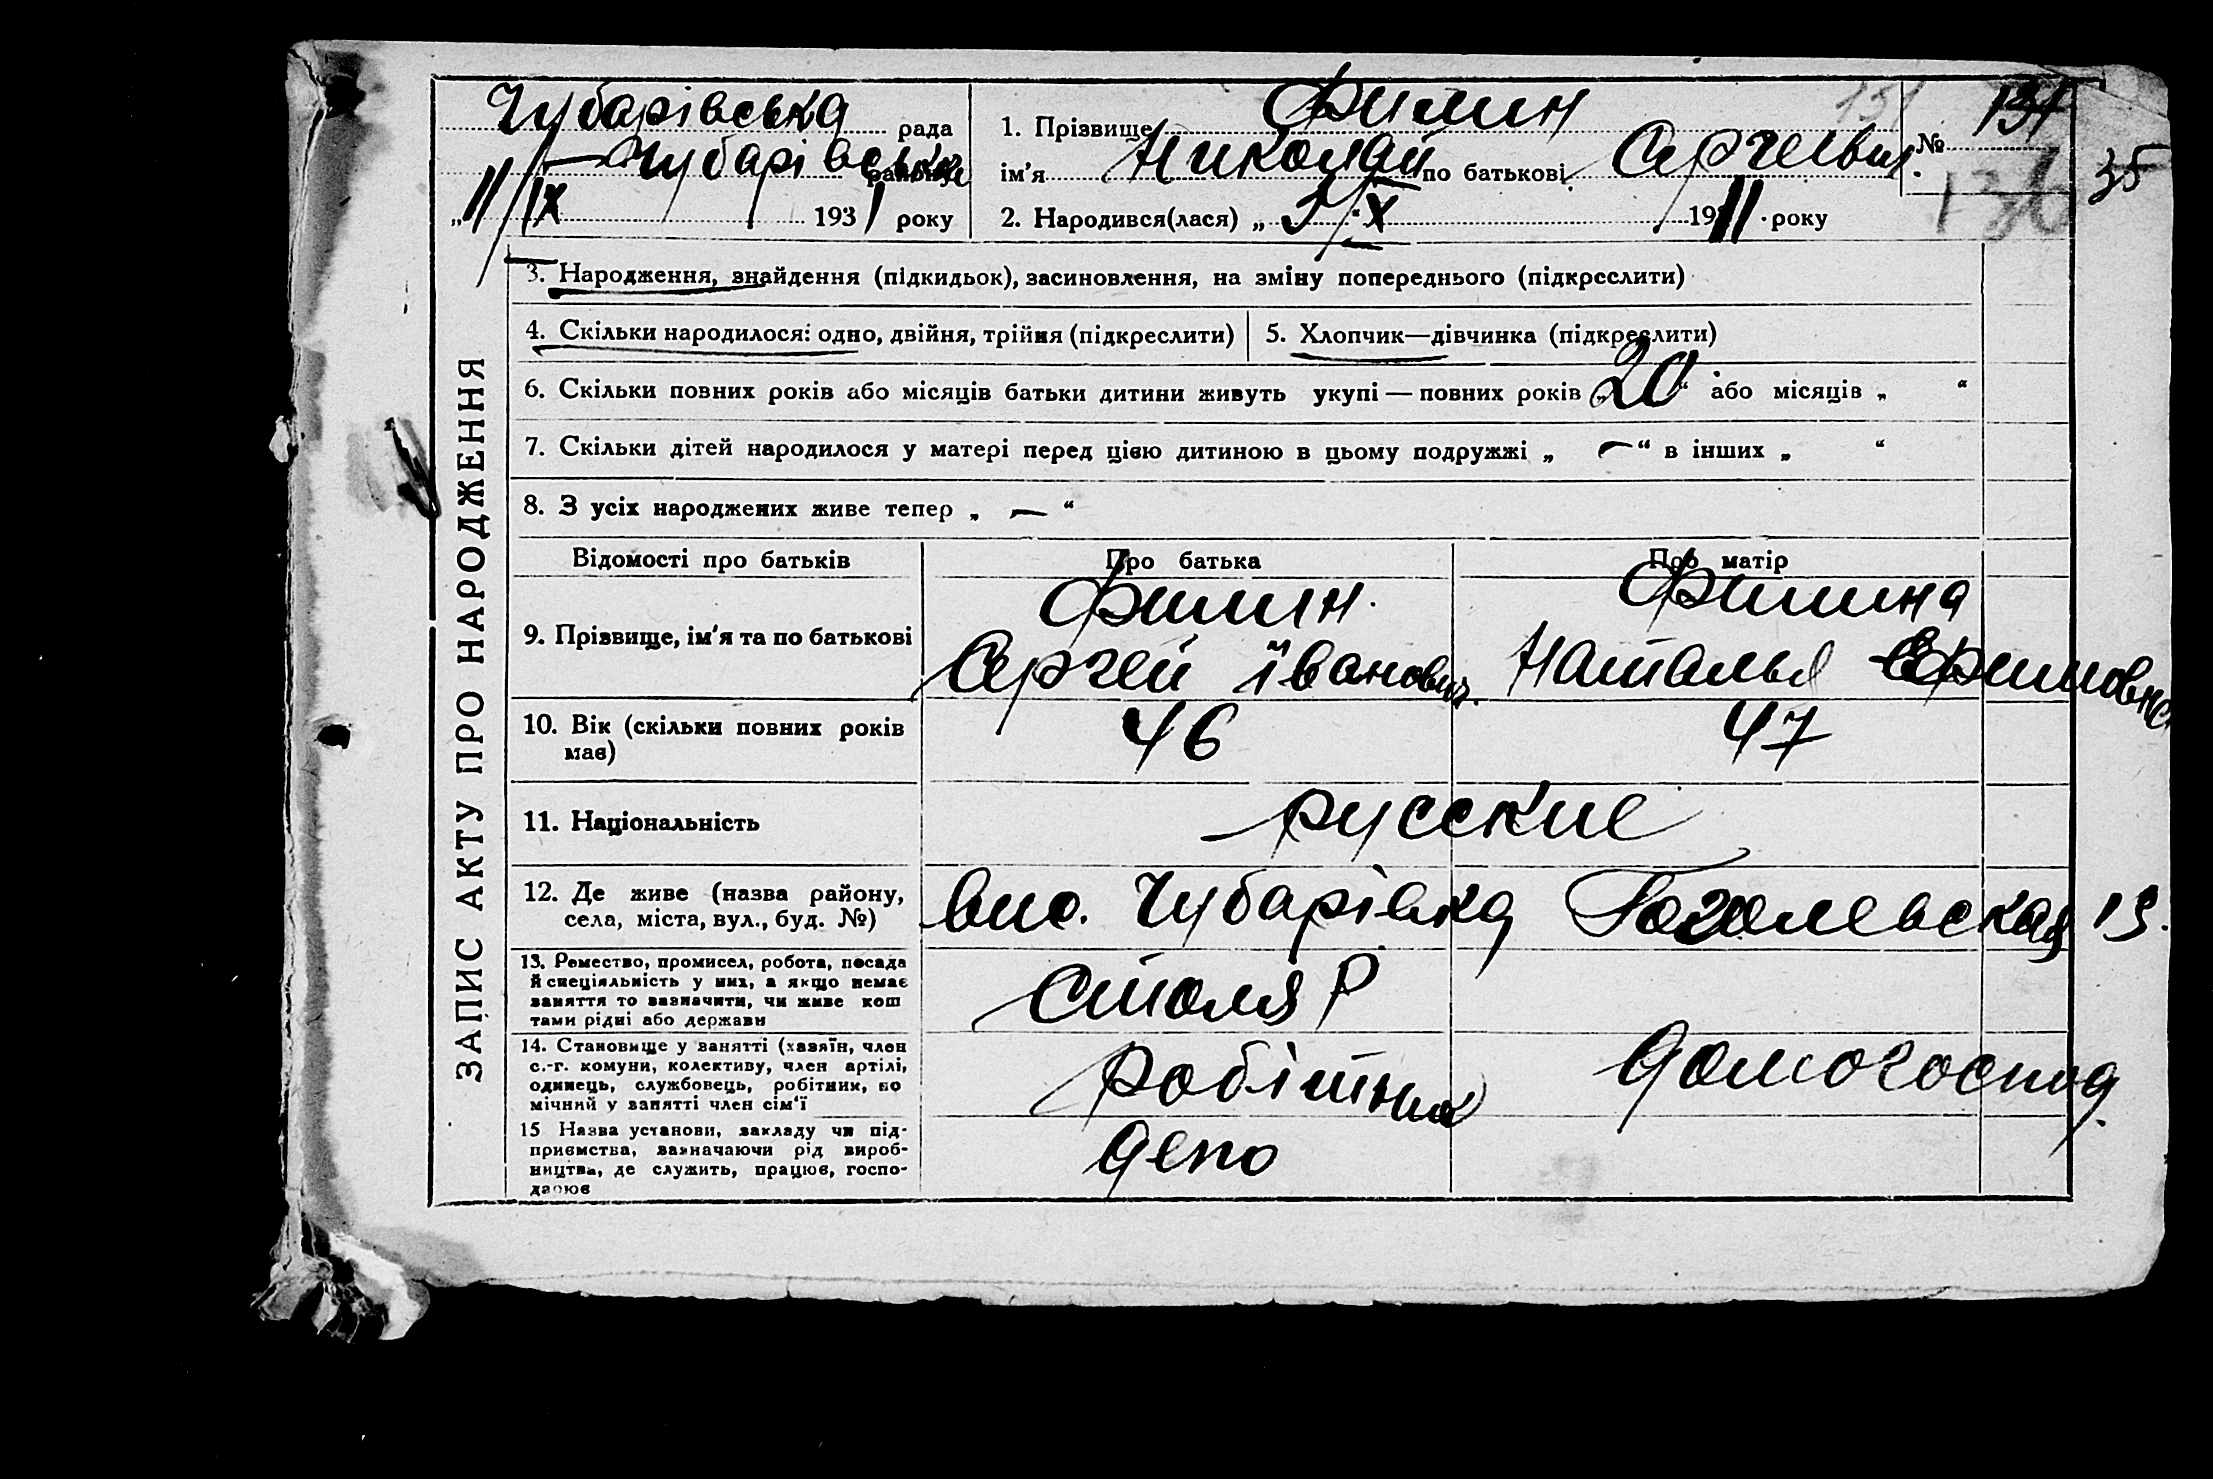 Чубарівська рада
Чубарівська району
„11/IX 1931 року
1. Прізвище Филин
ім'я Николай по батькові Сергеевич.
2. Народився(лася) „ 5/X 1911 року
№ 131
131
136
35
ЗАПИС АКТУ ПРО НАРОДЖЕННЯ
3. Народження, знайдення (підкидьок), засиновлення, на зміну попереднього (підкреслити)
4. Скільки народилося: одно, двійня, трійня (підкреслити)
5. Хлопчик—дівчинка (підкреслити)
6. Скільки повних років або місяців батьки дитини живуть укупі — повних років „20“ або місяців „ “
7. Скільки дітей народилося у матері перед цією дитиною в цьому подружжі „ — “ в інших „ “
8. З усіх народжених живе тепер „ — “
Відомості про батьків
Про батька
Про матір
9. Прізвище, ім'я та по батькові
Филин
Сергей Іванович.
Филина
Наталья Ефимовна
10. Вік (скільки повних років
має)
46
47
11. Національність
русские
12. Де живе (назва району,
села, міста, вул., буд. №)
вис. Чубарівка Гоголевская 19.
13. Ремество, промисел, робота, посада
й спеціяльність у них, а якщо немає
заняття то зазначити, чи живе кош
тами рідні або держави
Столяр
14. Становище у занятті (хазяїн, член
с.-г. комуни, колективу, член артілі,
одинець, службовець, робітник, по
мічний у занятті член сім'ї
робітник
домогоспод.
15 Назва установи, закладу чи під-
приємства, зазначаючи рід вироб-
ництва, де служить, працює, госпо-
дарює
депо